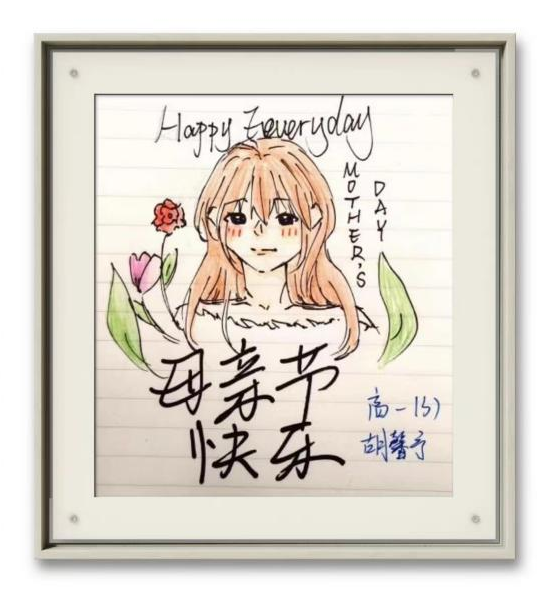 Happy Everyday
MOTHER'S
DAY
母亲节
快乐
高一(5)
胡馨予